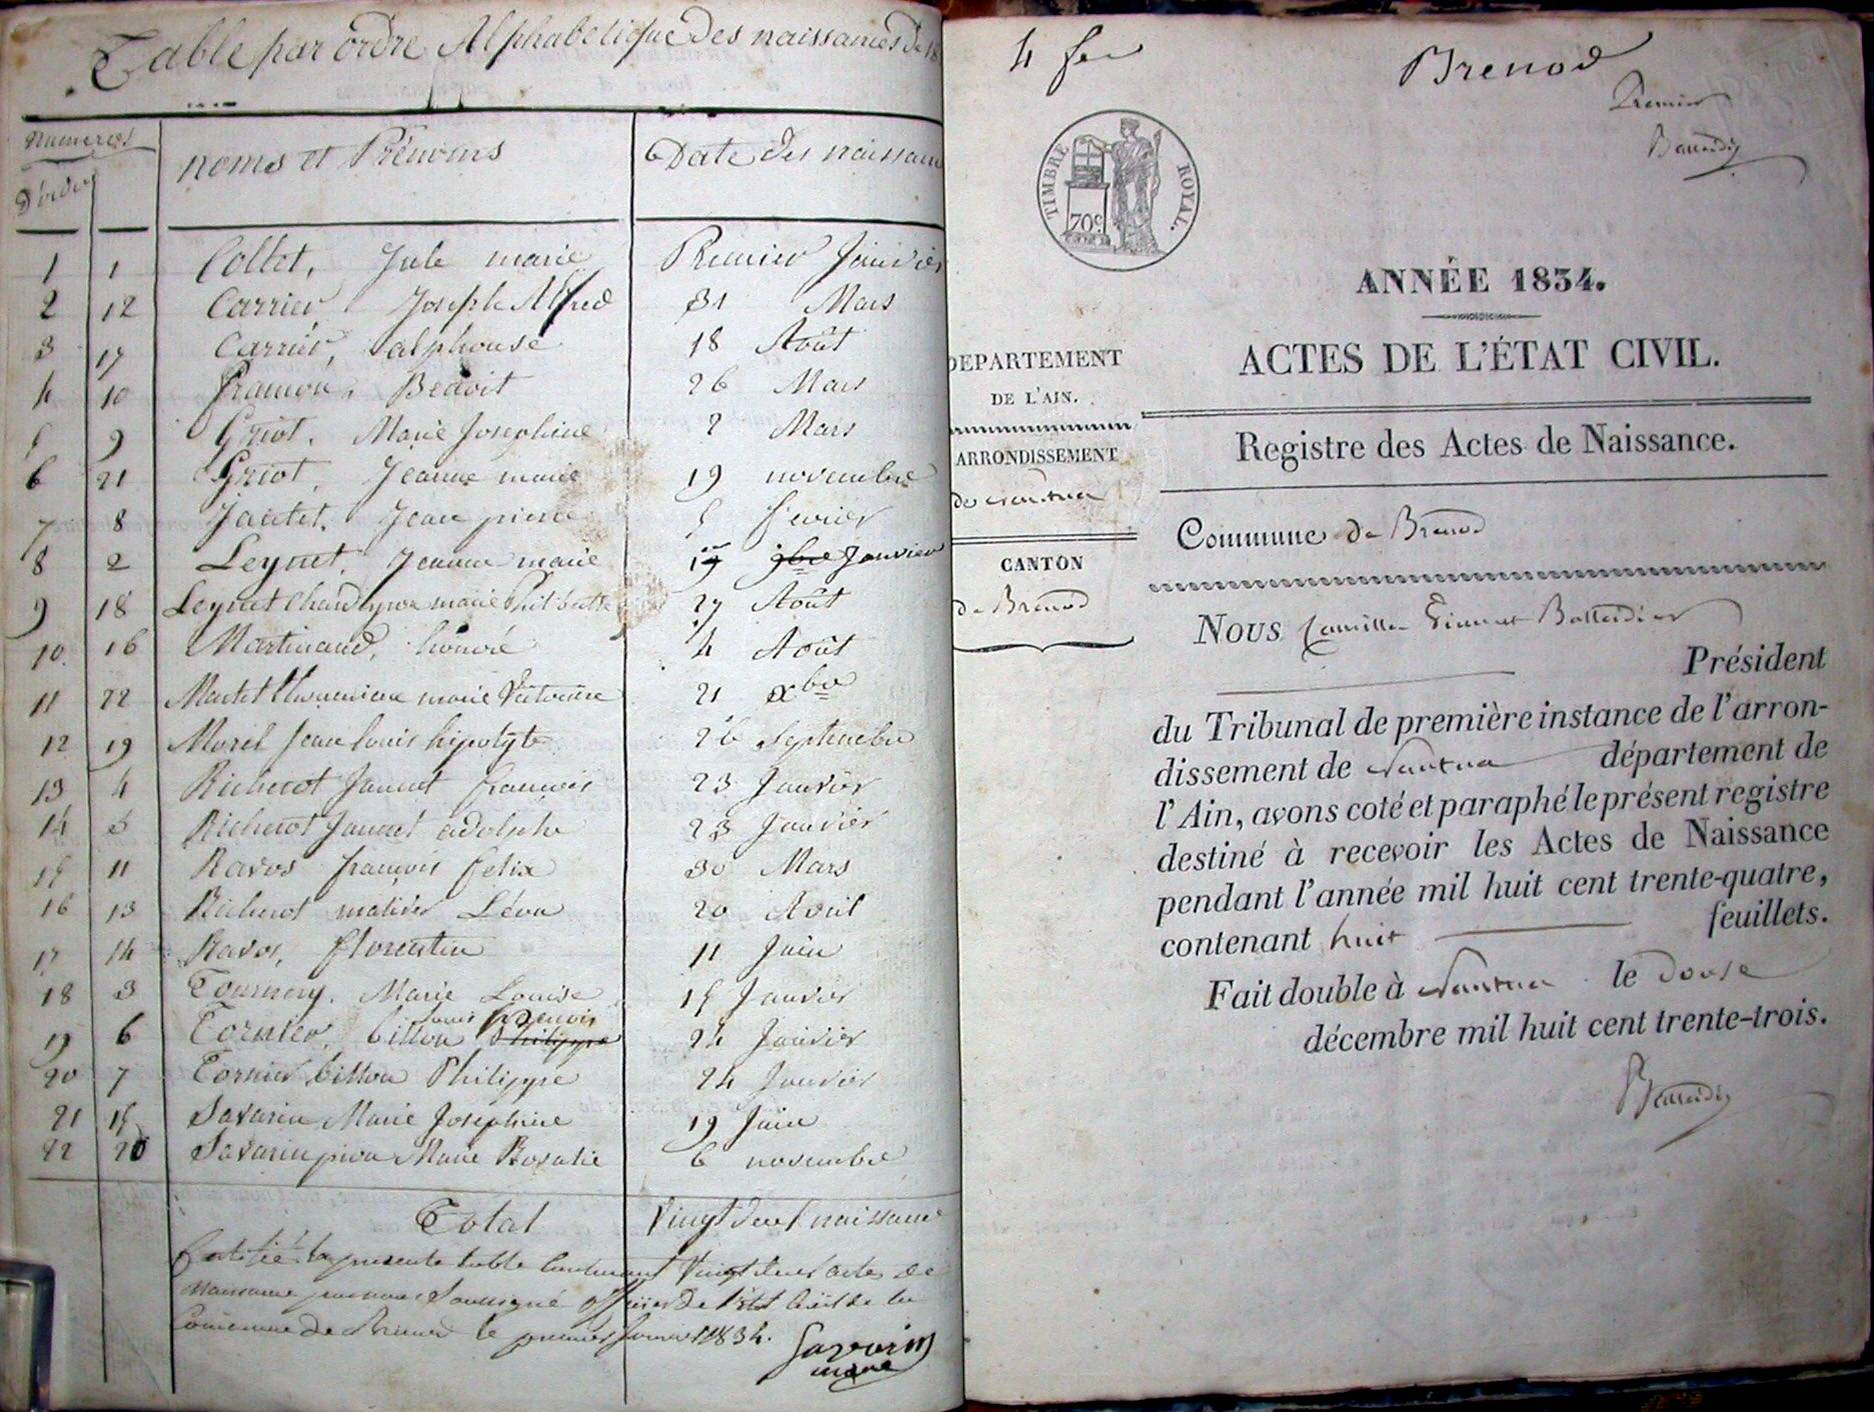 Table par ordre Alphabetique des naissances de 18
numeros
D'ordre
noms et Prénoms
Date des naissan
1 1 Collet, Jule marie Premier Janvier
2 12 Carrier Joseph Alfred 31 Mars
3 17 Carrier, alphonse 18 Août
4 10 Benoit 26 Mars
5 9 Griot, Marie Josephine 2 Mars
6 21 Griot, Jeanne marie 19 novembre
7 8 Jantet, Jean pierre 5 fevrier
8 2 Leynet, Jeanne marie 19 9bre Janvier
9 18 Leynet marie 27 Août
10 16 Martinand, honoré 4 Août
11 22 Martet marie Victorine 21 xbre
12 19 Morel Jean louis hipolyte 26 Septembre
13 4 Richerot Jannet francois 23 Janvier
14 5 Richerot Jannet adolphe 23 Janvier
15 11 Ravos françois felix 30 Mars
16 13 Richerot Léon 20 Avril
17 14 Ravos, florentin 11 Juin
18 3 Tournery, Marie Louise 15 Janvier
louis Benoit
19 6 Tornier, billon Philippe 24 Janvier
20 7 Tornier billon Philippe 24 Janvier
21 15 Savarin Marie Josephine 19 Juin
22 20 Savarin piron Marie Rosalie 6 novembre
Total Vingt deux naissance
Certifié la presente table contenant Vingt deux actes de
naissance par nous Soussigné officier de l'état Civil de la
Commune de Brenod le premier Janvier 1834.
Savarin
maire
4 feu
Brenod
Premier
TIMBRE ROYAL.
70c
ANNÉE 1834.
ACTES DE L'ÉTAT CIVIL.
DÉPARTEMENT
DE L'AIN.
Registre des Actes de Naissance.
ARRONDISSEMENT
de nantua
Commune de Brenod
CANTON
de Brenod
Nous Camille
Président
du Tribunal de première instance de l'arron-
dissement de Nantua département de
l'Ain, avons coté et paraphé le présent registre
destiné à recevoir les Actes de Naissance
pendant l'année mil huit cent trente-quatre,
contenant huit feuillets.
Fait double à Nantua le douse
décembre mil huit cent trente-trois.